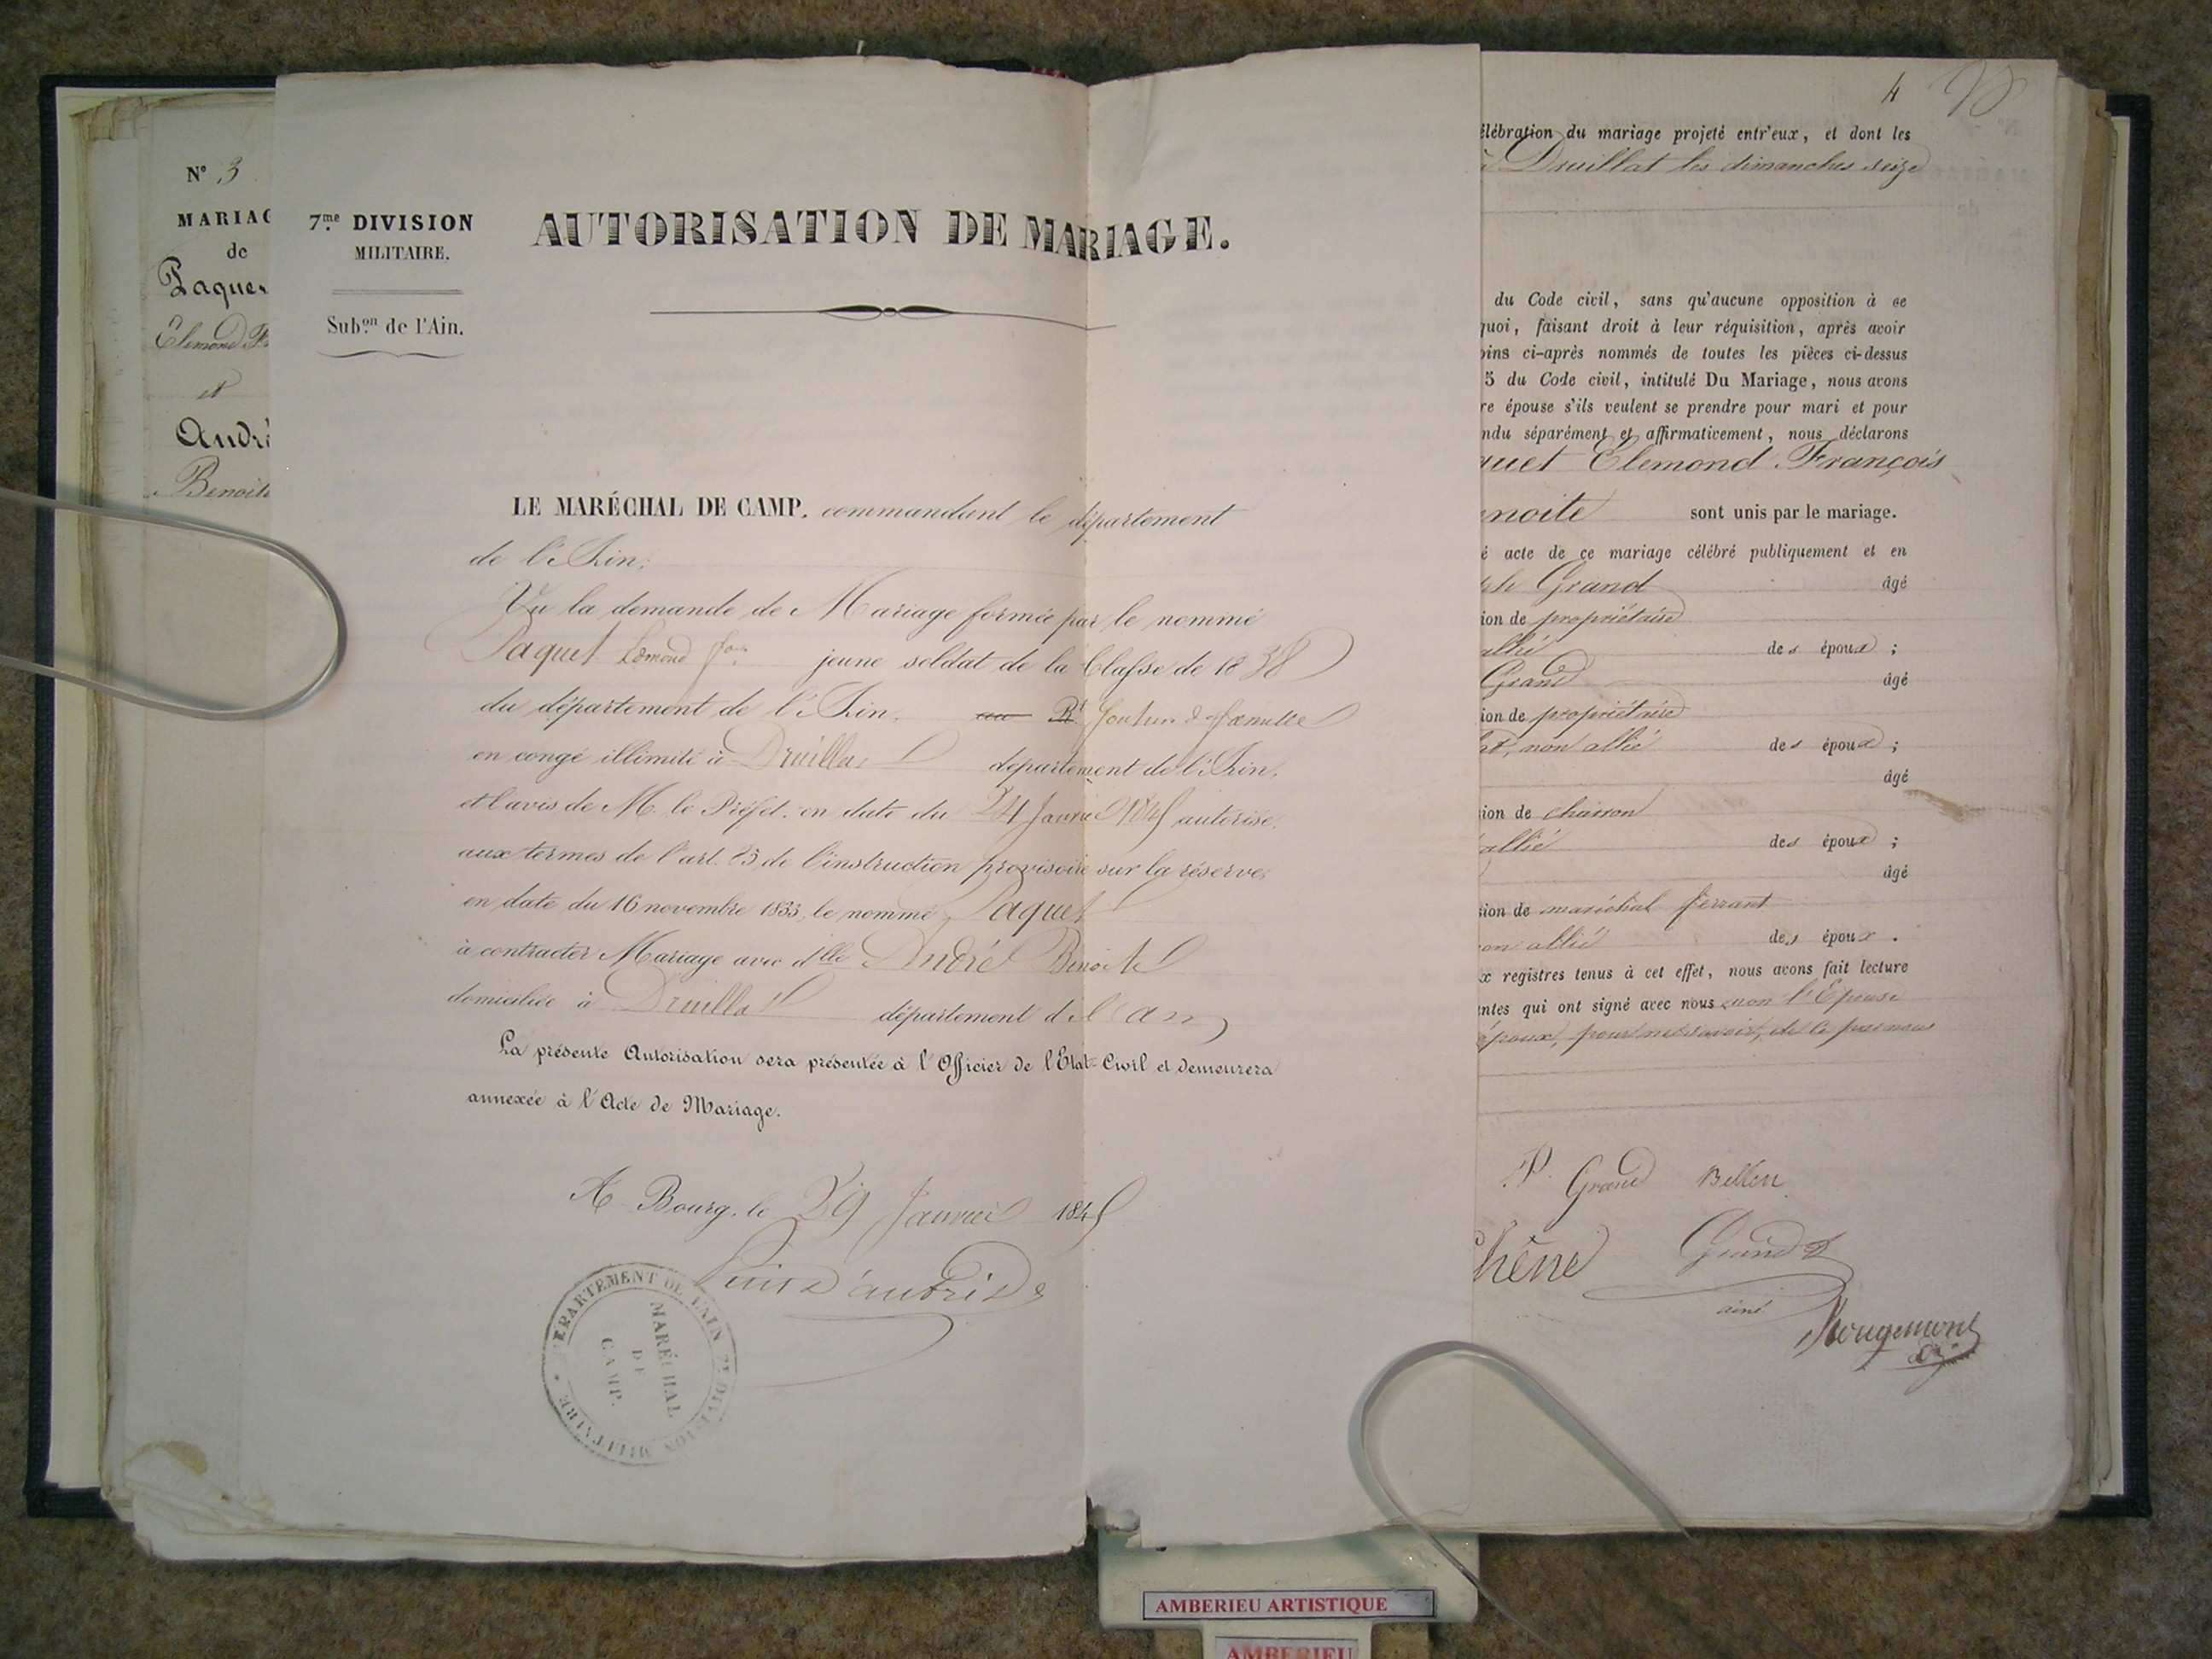 N° 3
MARIAG
de
Paque
Elemond F
et
André
Benoite
7me DIVISION
MILITAIRE.
Subon de l'Ain.
AUTORISATION DE MARIAGE.
LE MARÉCHAL DE CAMP, commandant le département
de l'Ain;
Vu la demande de Mariage formée par le nommé
Paquet Edmond fois jeune soldat de la Classe de 1838
du département de l'Ain, au Rt soutien de famille
en congé illimité à Druillat département de l'Ain,
et l'avis de M. le Préfet, en date du 24 Janvier 1845 autorise,
aux termes de l'art. 25 de l'instruction provisoire sur la réserve,
en date du 16 novembre 1833, le nommé Paquet
à contracter Mariage avec dlle André Benoite
domiciliée à Druillat département de l'ain
La présente Autorisation sera présentée à l'Officier de l'Etat-Civil et demeurera
annexée à l'Acte de Mariage.
A Bourg, le 29 Janvier 1845
DÉPARTEMENT DE L'AIN 7e DIVISION MILITAIRE
MARÉCHAL
DE
CAMP.
4
élébration du mariage projeté entr'eux, et dont les
à Druillat les dimanches seize
du Code civil, sans qu'aucune opposition à ce
quoi, faisant droit à leur réquisition, après avoir
oins ci-après nommés de toutes les pièces ci-dessus
5 du Code civil, intitulé Du Mariage, nous avons
re épouse s'ils veulent se prendre pour mari et pour
ndu séparément et affirmativement, nous déclarons
quet Elemond François
noite sont unis par le mariage.
é acte de ce mariage célébré publiquement et en
ph Grand âgé
ion de propriétaire
allié des époux ;
Grand âgé
ion de propriétaire
at, non allié des époux ;
âgé
ion de charron
allié des époux ;
âgé
ion de maréchal ferrant
on allié des époux .
x registres tenus à cet effet, nous avons fait lecture
ntes qui ont signé avec nous non l'Epouse
époux, pour ne savoir, de ce par nous
P. Grand Bellen
hêne Grand
ainé
Rougemont
AMBERIEU ARTISTIQUE
AMBERIEU